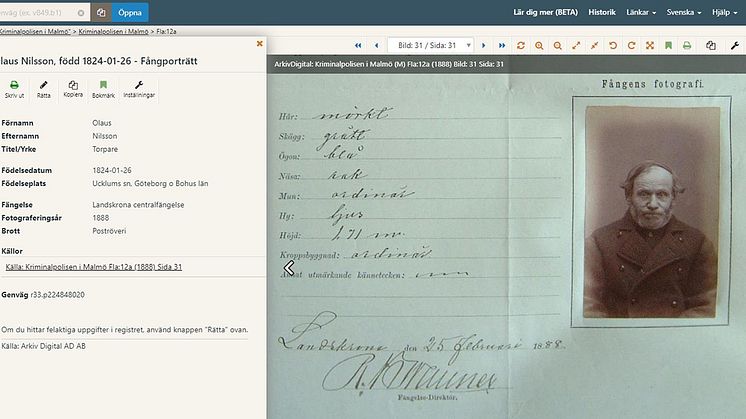 nväg (ex. v849.b1)
Öppna
Lär dig mer (BETA) Historik Länkar Svenska Hjälp
Kriminalpolisen i Malmö" > Kriminalpolisen i Malmö > Fla:12a
laus Nilsson, född 1824-01-26 - Fångporträtt
Skriv ut Rätta Kopiera Bokmärk Inställningar
Förnamn Olaus
Efternamn Nilsson
Titel/Yrke Torpare
Födelsedatum 1824-01-26
Födelseplats Ucklums sn, Göteborg o Bohus län
Fängelse Landskrona centralfängelse
Fotograferingsår 1888
Brott Poströveri
Källor
Källa: Kriminalpolisen i Malmö Fla:12a (1888) Sida 31
Genväg r33.p224848020
Om du hittar felaktiga uppgifter i registret, använd knappen "Rätta" ovan.
Källa: Arkiv Digital AD AB
Bild: 31 / Sida: 31
ArkivDigital: Kriminalpolisen i Malmö (M) Fla:12a (1888) Bild: 31 Sida: 31
Fångens fotografi.
Hår: mörkt
Skägg: grått
Ögon: blå
Näsa: rak
Mun: ordinär
Hy: ljus
Höjd: 1,71 m.
Kroppsbyggnad: ordinär
Annat utmärkande kännetecken:
Landskrona den 25 februari 1888.
Fängelse-Direktör.